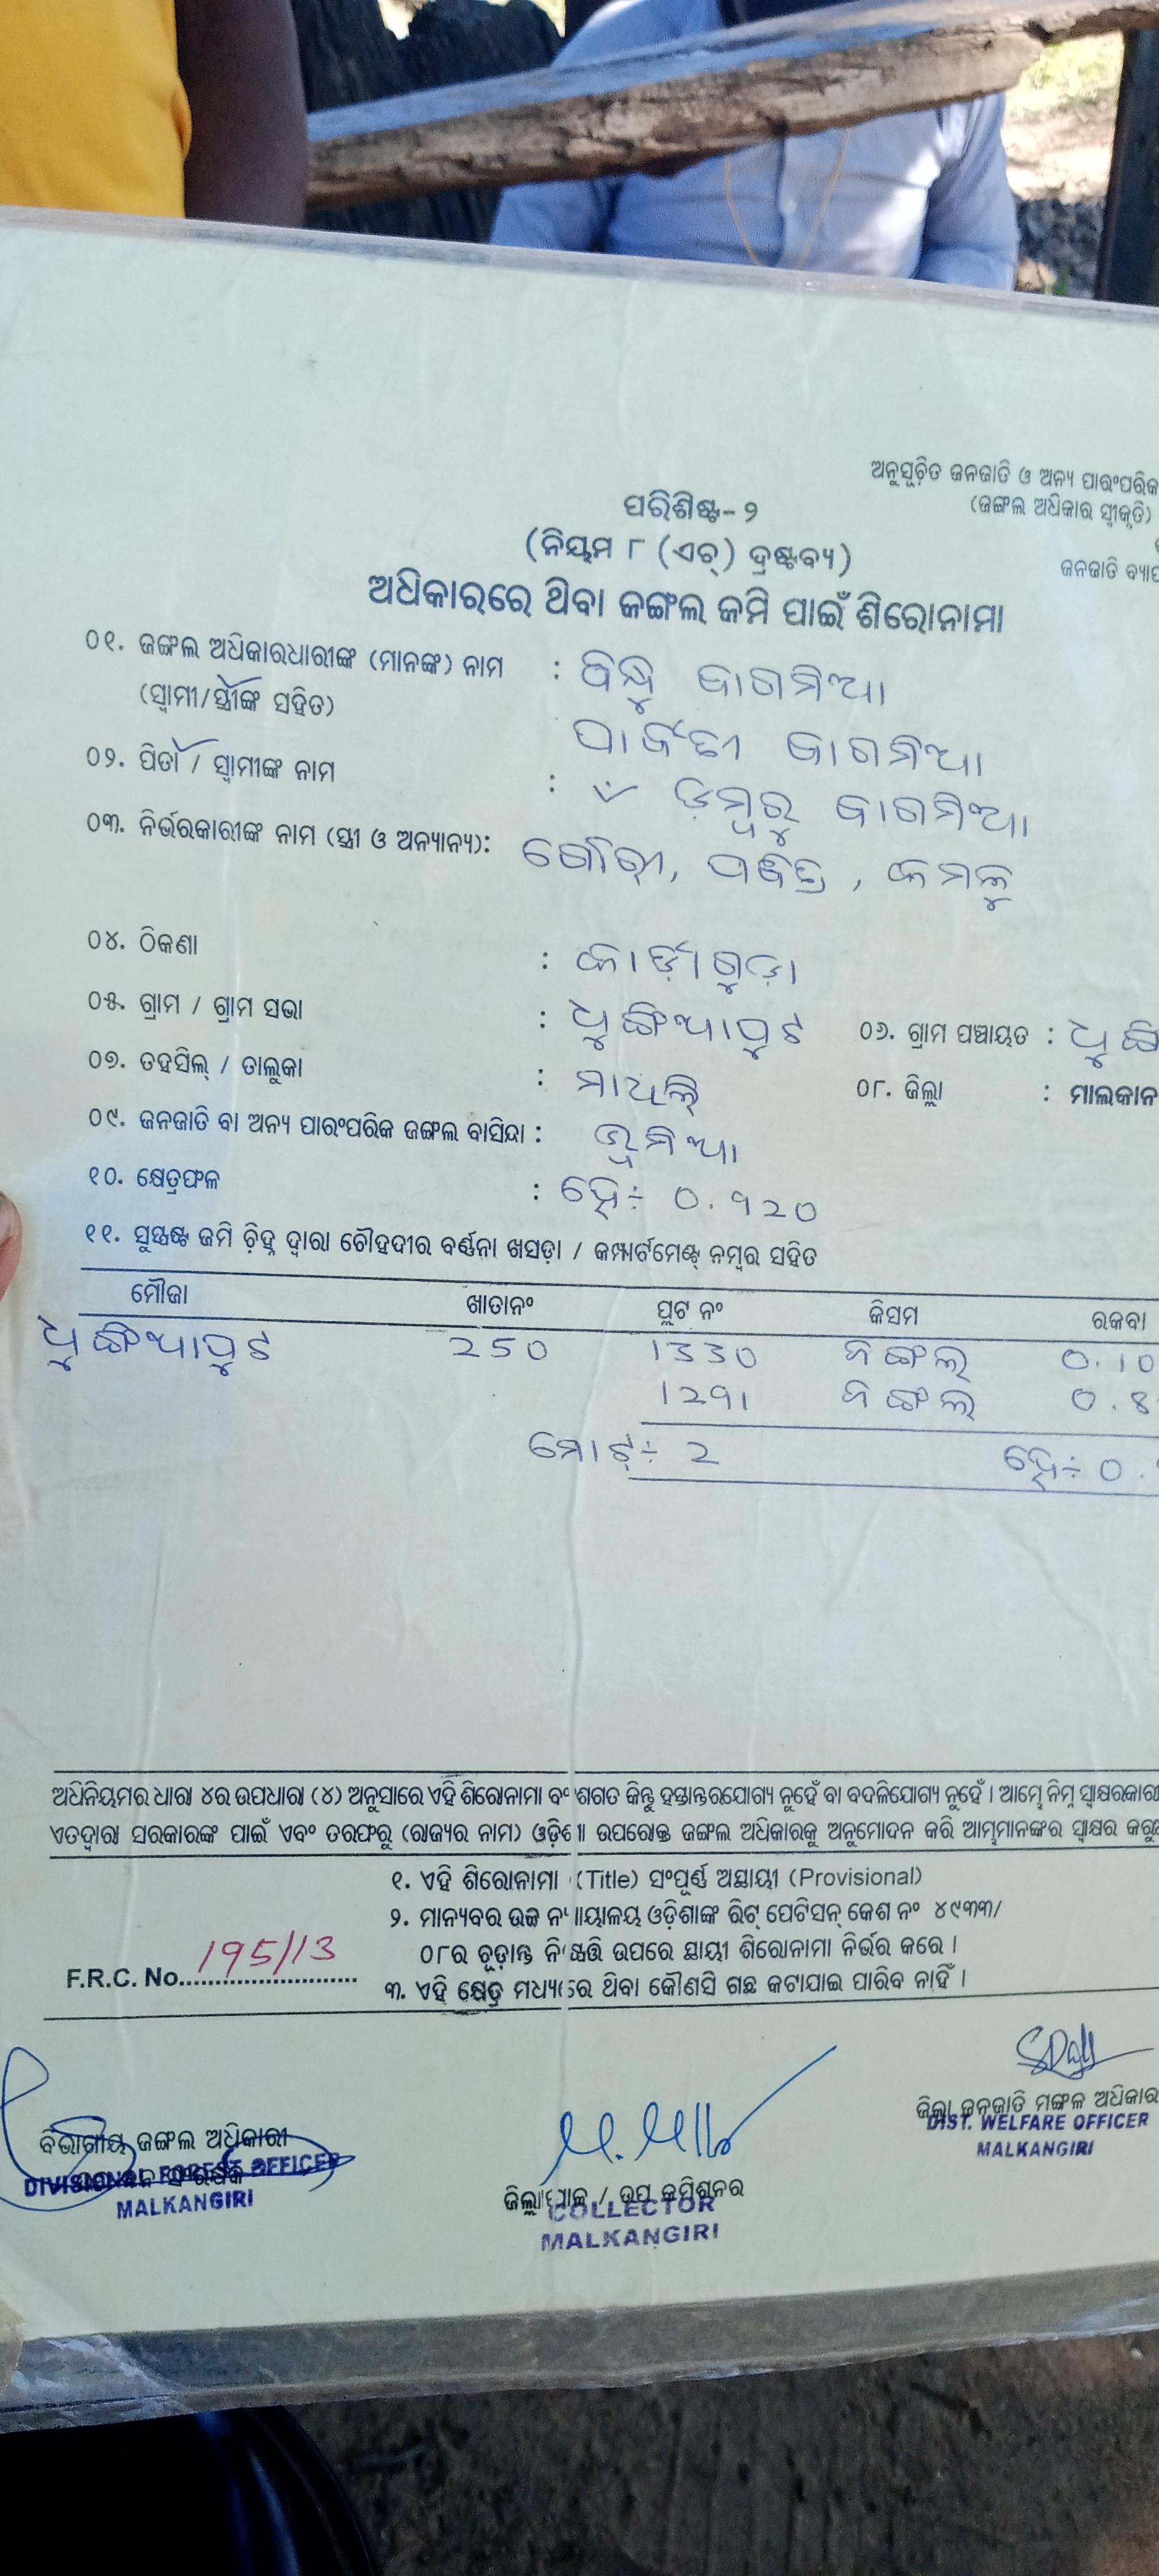 ଅନୁସୂଚିତ ଜନଜାତି ଓ ଅନ୍ୟ ପାରଂପରିକ
(ଜଙ୍ଗଲ ଅଧିକାର ସ୍ୱୀକୃତି)
ଜନଜାତି
ପରିଶିଷ୍ଟ-୨
(ନିୟମ ୮ (ଏଚ୍) ଦ୍ରଷ୍ଟବ୍ୟ)
ଅଧିକାରରେ ଥିବା ଜଙ୍ଗଲ ଜମି ପାଇଁ ଶିରୋନାମା
୦୧. ଜଙ୍ଗଲ ଅଧିକାରଧାରୀଙ୍କ (ମାନଙ୍କ) ନାମ : ବିନ୍ଧୁ ବାଗମିଆ
(ସ୍ୱାମୀ/ସ୍ତ୍ରୀଙ୍କ ସହିତ) ପାର୍ବତୀ ବାଗମିଆ
୦୨. ପିତା / ସ୍ୱାମୀଙ୍କ ନାମ : ଡ଼ମ୍ବରୁ ବାଗମିଆ
୦୩. ନିର୍ଭରକାରୀଙ୍କ ନାମ (ସ୍ତ୍ରୀ ଓ ଅନ୍ୟାନ୍ୟ): ଗୌରୀ, କମଳୁ
୦୪. ଠିକଣା : କାର୍ଡ଼ାଗୁଡ଼ା
୦୫. ଗ୍ରାମ / ଗ୍ରାମ ସଭା : ଧୁଙ୍ଗିଆପୁଟ ୦୬. ଗ୍ରାମ ପଞ୍ଚାୟତ : ଧୁଙ୍ଗି
୦୭. ତହସିଲ୍ / ତାଲୁକା : ମାଥିଲି ୦୮. ଜିଲ୍ଲା : ମାଲକାନ
୦୯. ଜନଜାତି ବା ଅନ୍ୟ ପାରଂପରିକ ଜଙ୍ଗଲ ବାସିନ୍ଦା : ଭୂମିଆ
୧୦. କ୍ଷେତ୍ରଫଳ : ହେ÷ ୦.920
୧୧. ସୁସ୍ପଷ୍ଟ ଜମି ଚିହ୍ନ ଦ୍ୱାରା ଚୌହଦୀର ବର୍ଣ୍ଣନା ଖସଡ଼ା / କମ୍ପାର୍ଟମେଣ୍ଟ୍ ନମ୍ବର ସହିତ
ମୌଜା ଖାତାନଂ ପ୍ଲଟ ନଂ କିସମ ରକବା
ଧୁଙ୍ଗିଆପୁଟ 250 1330 ଜଙ୍ଗଲ 0.10
1291 ଜଙ୍ଗଲ 0.8
ମୋଟ୍÷ 2 ହେ÷ 0.
ଅଧିନିୟମର ଧାରା ୪ର ଉପଧାରା (୪) ଅନୁସାରେ ଏହି ଶିରୋନାମା ବଂଶଗତ କିନ୍ତୁ ହସ୍ତାନ୍ତରଯୋଗ୍ୟ ନୁହେଁ ବା ବଦଳିଯୋଗ୍ୟ ନୁହେଁ । ଆମ୍ଭେ ନିମ୍ନ ସ୍ୱାକ୍ଷରକାରୀ
ଏତଦ୍ୱାରା ସରକାରଙ୍କ ପାଇଁ ଏବଂ ତରଫରୁ (ରାଜ୍ୟର ନାମ) ଓଡ଼ିଶା ଉପରୋକ୍ତ ଜଙ୍ଗଲ ଅଧିକାରକୁ ଅନୁମୋଦନ କରି ଆମ୍ଭମାନଙ୍କର ସ୍ୱାକ୍ଷର କରୁ
୧. ଏହି ଶିରୋନାମା (Title) ସଂପୂର୍ଣ୍ଣ ଅସ୍ଥାୟୀ (Provisional)
୨. ମାନ୍ୟବର ଉଚ୍ଚ ନ୍ୟାୟାଳୟ ଓଡ଼ିଶାଙ୍କ ରିଟ୍ ପେଟିସନ୍ କେଶ ନଂ ୪୯୩୩/
୦୮ର ଚୂଡ଼ାନ୍ତ ନିଷ୍ପତ୍ତି ଉପରେ ସ୍ଥାୟୀ ଶିରୋନାମା ନିର୍ଭର କରେ ।
F.R.C. No. 195/13
୩. ଏହି କ୍ଷେତ୍ର ମଧ୍ୟରେ ଥିବା କୌଣସି ଗଛ କଟାଯାଇ ପାରିବ ନାହିଁ ।
ବିଭାଗୀୟ ଜଙ୍ଗଲ ଅଧିକାରୀ
DIVISIONAL FOREST OFFICER
MALKANGIRI
ଜିଲ୍ଲାପାଳ / ଉପ କମିଶନର
COLLECTOR
MALKANGIRI
ଜିଲ୍ଲା ଜନଜାତି ମଙ୍ଗଳ ଅଧିକାର
DIST. WELFARE OFFICER
MALKANGIRI